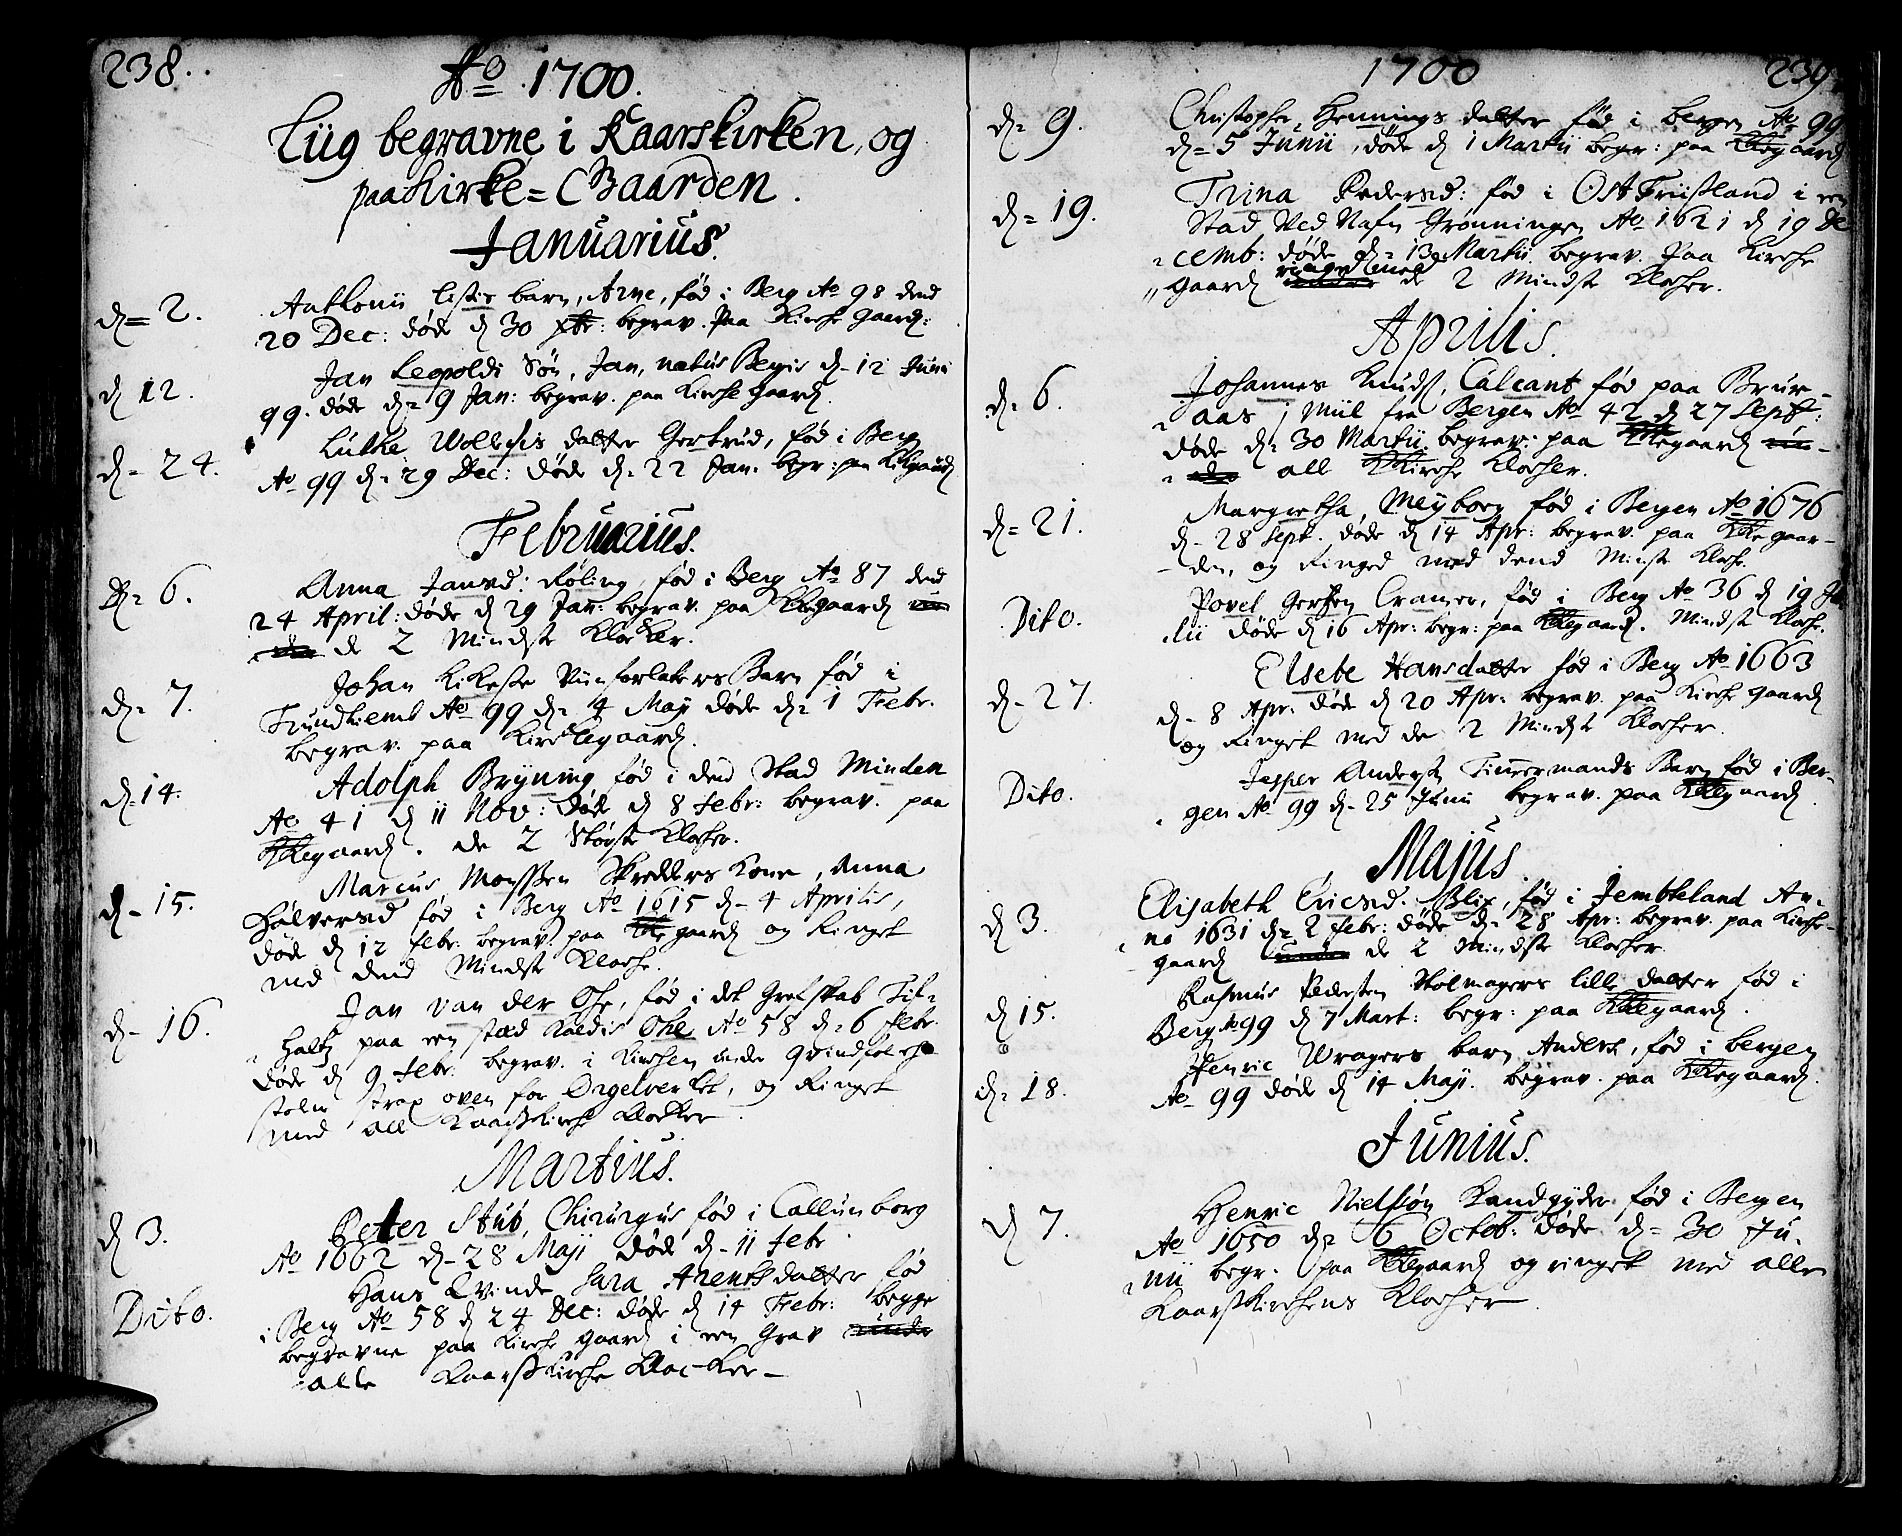 238.
Ao 1700.
Liig begravne i Kaarskirken, og
paa Kirke=Gaarden.
Januarius.
d= 2. Anthonii barn, Arne, fød i Berg Ao 98 dend
20 Dec: døde d 30 begrav. paa Kirche gaard:
d 12. Jan Leopoldi Søn, Jan, natus Bergis d- 12 Juni
99. døde d= 9 Jan: begrav. paa Kirche gaard.
d- 24. Lutke datter Gertrud, fød i Berg
Ao 99 d= 29 Dec: døde d= 22 Jan: begr: paa
Februarius.
d= 6. Anna Jansd: Røling, fød i Berg Ao 87 dend
24 April: døde d 29 Jan: begrav. paa KKegaard
de 2 Mindste Klocker.
d= 7. Johan Barn fød i
Trundhiemb Ao 99 d= 4 Maij døde d= 1 Febr.
begrav. paa Kirckegaard.
d=14. Adolph Bryning fød i dend Stad Minden
Ao 41 d 11 Nov: døde d 8 febr: begrav. paa
KKegaard. de 2 Støyste Klocher.
d- 15. Marcus Monssen Skredders Kone, Anna
Halversd fød i Berg Ao 1615 d- 4 Aprilis,
døde d 12 febr: begrav. paa KKegaard og Ringet
med dend Mindste Kloche.
d- 16. Jan van der Ohe, fød i det Grefskab
Holtz paa een sted Kaldis Ohe Ao 58 d=6 febr.
døde d 9 febr. begrav. i Kirchen
stolen strax oven for Orgelverket, og Ringet
med all Kaarsskirche Klocker.
Martius.
d 3. Petter Stub, Chirurgus fød i Callunborg
Ao 1662 d- 28 Maji døde d- 11 febr
Dito. Hans Qvinde Sara Arentsdatter fød
i Berg Ao 58 d 24 Dec: døde d 14 Febr: begge
begravne paa Kirche gaard i een Grav
alle Kaarsskirche Klocker-
1700 239.
d= 9. Christopher Hennings datter fød i bergen Ao 99
d= 5 Junii, døde d 1 Martii begr: paa KKegaard
d= 19. Trina Pedersd: fød i Ost Friisland i een
Stad Ved Nafn Grønningen Ao 1621 d 19 De
cemb: døde d= 13 Martii begrav. paa Kirche
gaard ringet med de 2 Mindste Klocher.
Aprilis.
d= 6. Johannes Knuds, Calcant fød paa Brur-
aas 1 Miil fra Bergen Ao 42 d 27 Sept:
døde d= 30 Martii begrav: paa KKegaard
all Kirche Klocher.
d= 21. Margretha Meyborg fød i Bergen Ao 1676
d- 28 Sept. døde d 14 Apr: begrav. paa KKegaar-
den, og Ringed med dend Minste Kloche.
Dito. Povel Gertsen Cramer, fød i Berg Ao 36 d 19 Ju
lii døde d 16 Apr: begr: paa KKegaard. Mindste Kloche.
d- 27. Elsebe Hansdatter fød i Berg Ao 1663
d- 8 Apr. døde d 20 Apr: begrav. paa Kirche gaard
og Ringet med de 2 Mindste Klocher.
Dito. Jesper Anders Timmermands Barn fød i Ber-
gen Ao 99 d- 25 Junii begrav. paa KKegaard.
Majus.
d 3. Elisabeth Ericsd. Blix, fød i Jembteland An-
no 1631 d= 2 febr: døde d= 28 Apr: begrav. paa Kirche-
gaard de 2 Mindste Klocher.
d 15. Rasmus Pedersen Stolmagers lille datter fød i
Berg Ao 99 d 7 Mart: begr: paa KKegaard.
d= 18. Henric Wragers barn Anders, fød i bergen
Ao 99 døde d 14 Maji. begrav. paa KKegaard.
Junius.
d 7. Henric Nielsøn Kandgyder fød i Bergen
Ao 1650 d= 6 Octob: døde d= 30 Ju-
nii begr. paa KKegaard og ringet med alle
Kaarsskirchens Klocher.